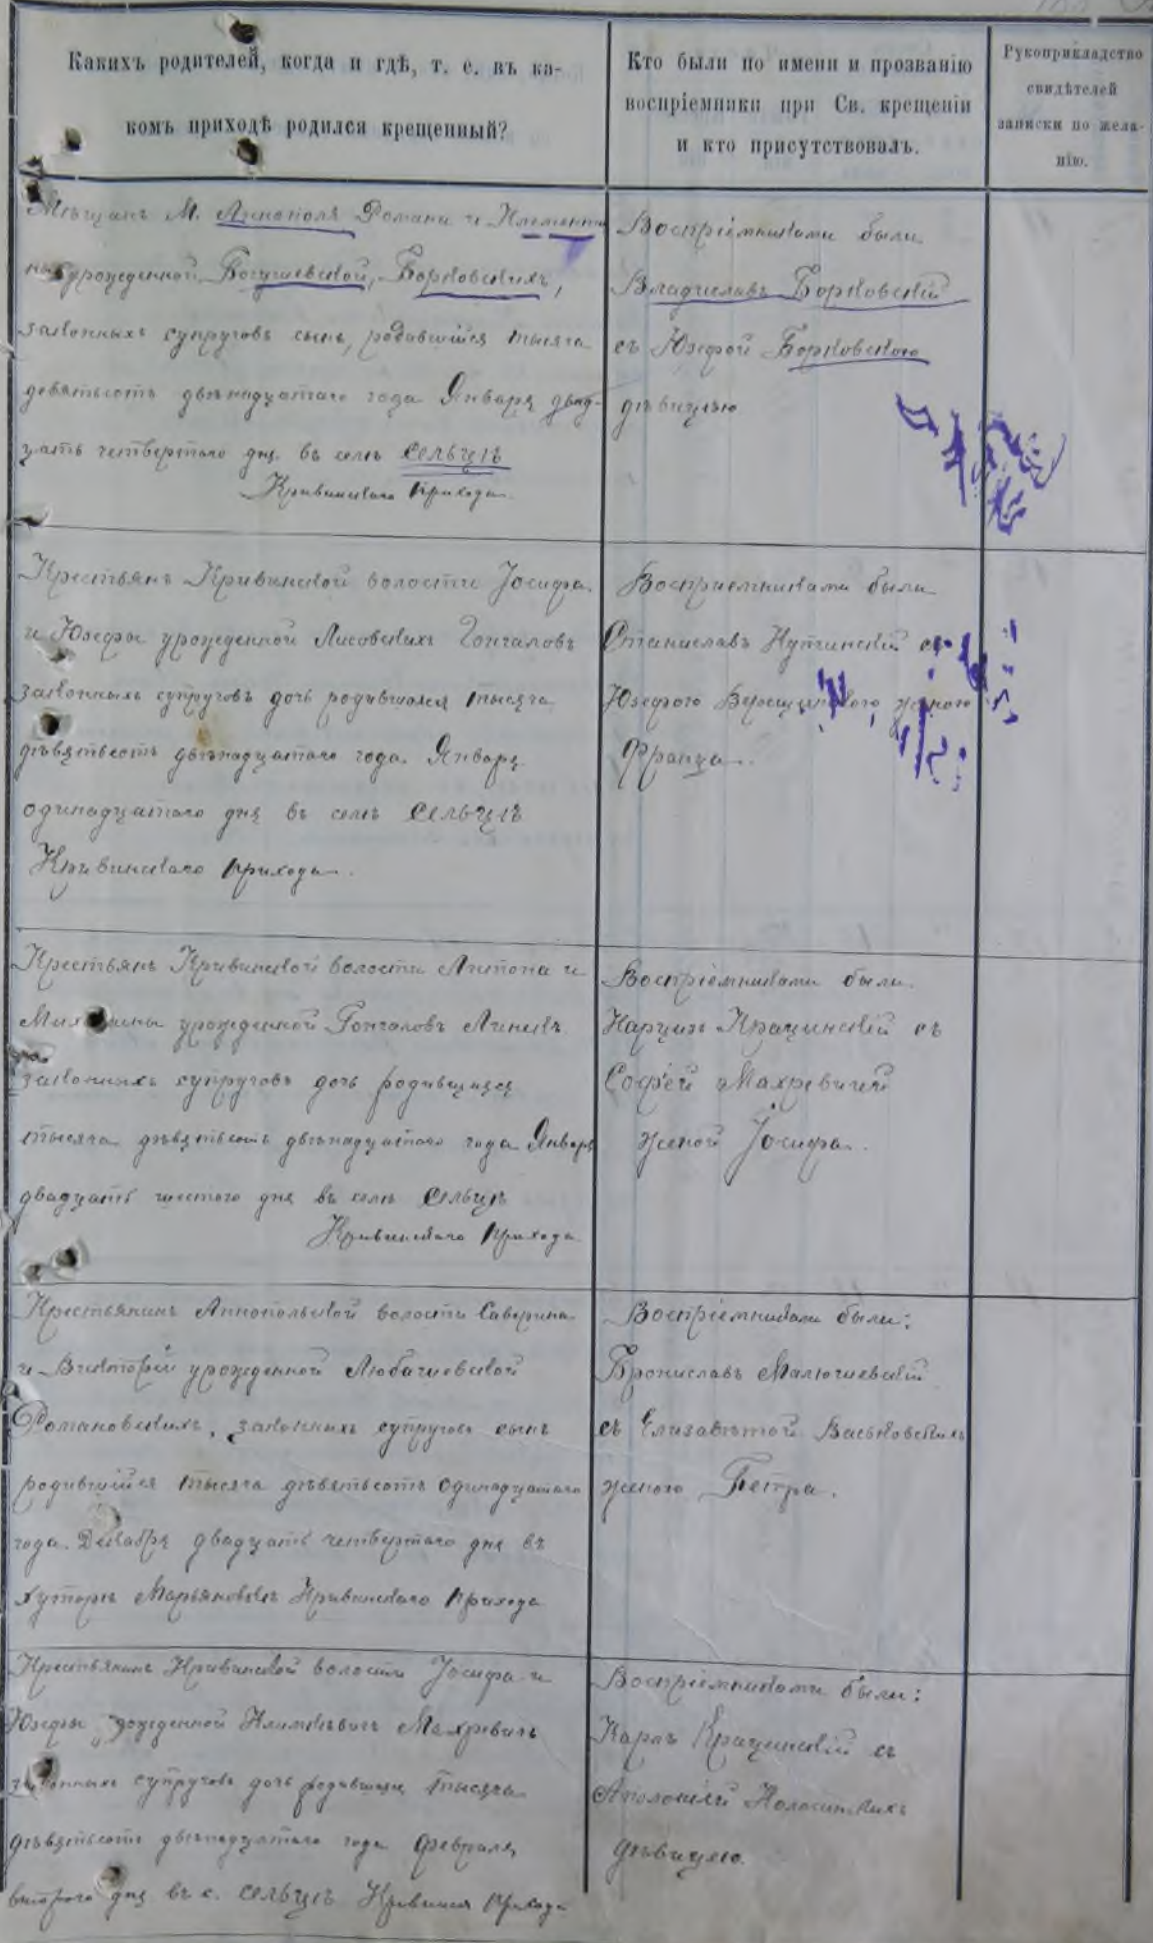 Какихъ родителей, когда и гдѣ, т. е. въ ка-
комъ приходѣ родился крещенный?
Кто были по имени и прозванію
воспріемники при Св. крещеніи
и кто присутствовалъ.
Рукоприкладство
свидѣтелей
записки по жела-
нію.
Мѣщанъ М. Аннополя Романа и Клементи
ны урожденной Богушевской, Борковскихъ,
законныхъ супруговъ сынъ, родившійся тысяча
девятьсотъ двѣнадцатаго года Января двад-
цать четвертаго дня въ селѣ Сельцѣ
Кривинскаго прихода.
Воспріемниками были
Владиславъ Борковскій
съ Юзефой Борковскою
дѣвицею
Крестьянъ Кривинской волости Іосифа
и Юзефы урожденной Лисовскихъ Гончаловъ
законныхъ супруговъ дочь родившаяся тысяча
дѣвятьсотъ двѣнадцатаго года Января
одинадцатаго дня въ селѣ Сельцѣ
Кривинскаго прихода.
Восприемниками были
Станиславъ съ
Юзефою женою
Франца.
Крестьянъ Кривинской волости Антона и
урожденной Гончаловъ
законныхъ супруговъ дочь родившаяся
тысяча дѣвятьсотъ двѣнадцатаго года Января
двадцать шестого дня въ селѣ Сельцѣ
Кривинскаго прихода
Воспріемниками были
Нарцизъ Крацинскій съ
Софіей Махревичей
женой Іосифа.
Крестьянинъ Аннопольской волости Саверина
и Викторіи урожденной Любачевской
Романовскихъ, законныхъ супруговъ сынъ
родившійся тысяча дѣвятьсотъ одинадцатаго
года Декабря двадцать четвертаго дня въ
хуторѣ Марьяновкѣ Кривинскаго прихода
Воспріемниками были:
Брониславъ Малючевскій
съ Елизаветой Васьковскихъ
женою Петра.
Крестьянинъ Кривинской волости Іосифа и
Юзефы рожденной Климкѣвичъ Махревичъ
законныхъ супруговъ дочь родившаяся тысяча
дѣвятьсотъ двѣнадцатаго года февраля
второго дня въ с. Сельцѣ прихода
Воспріемниками были:
Карлъ Крацинскій съ
Аполоніей
дѣвицею.